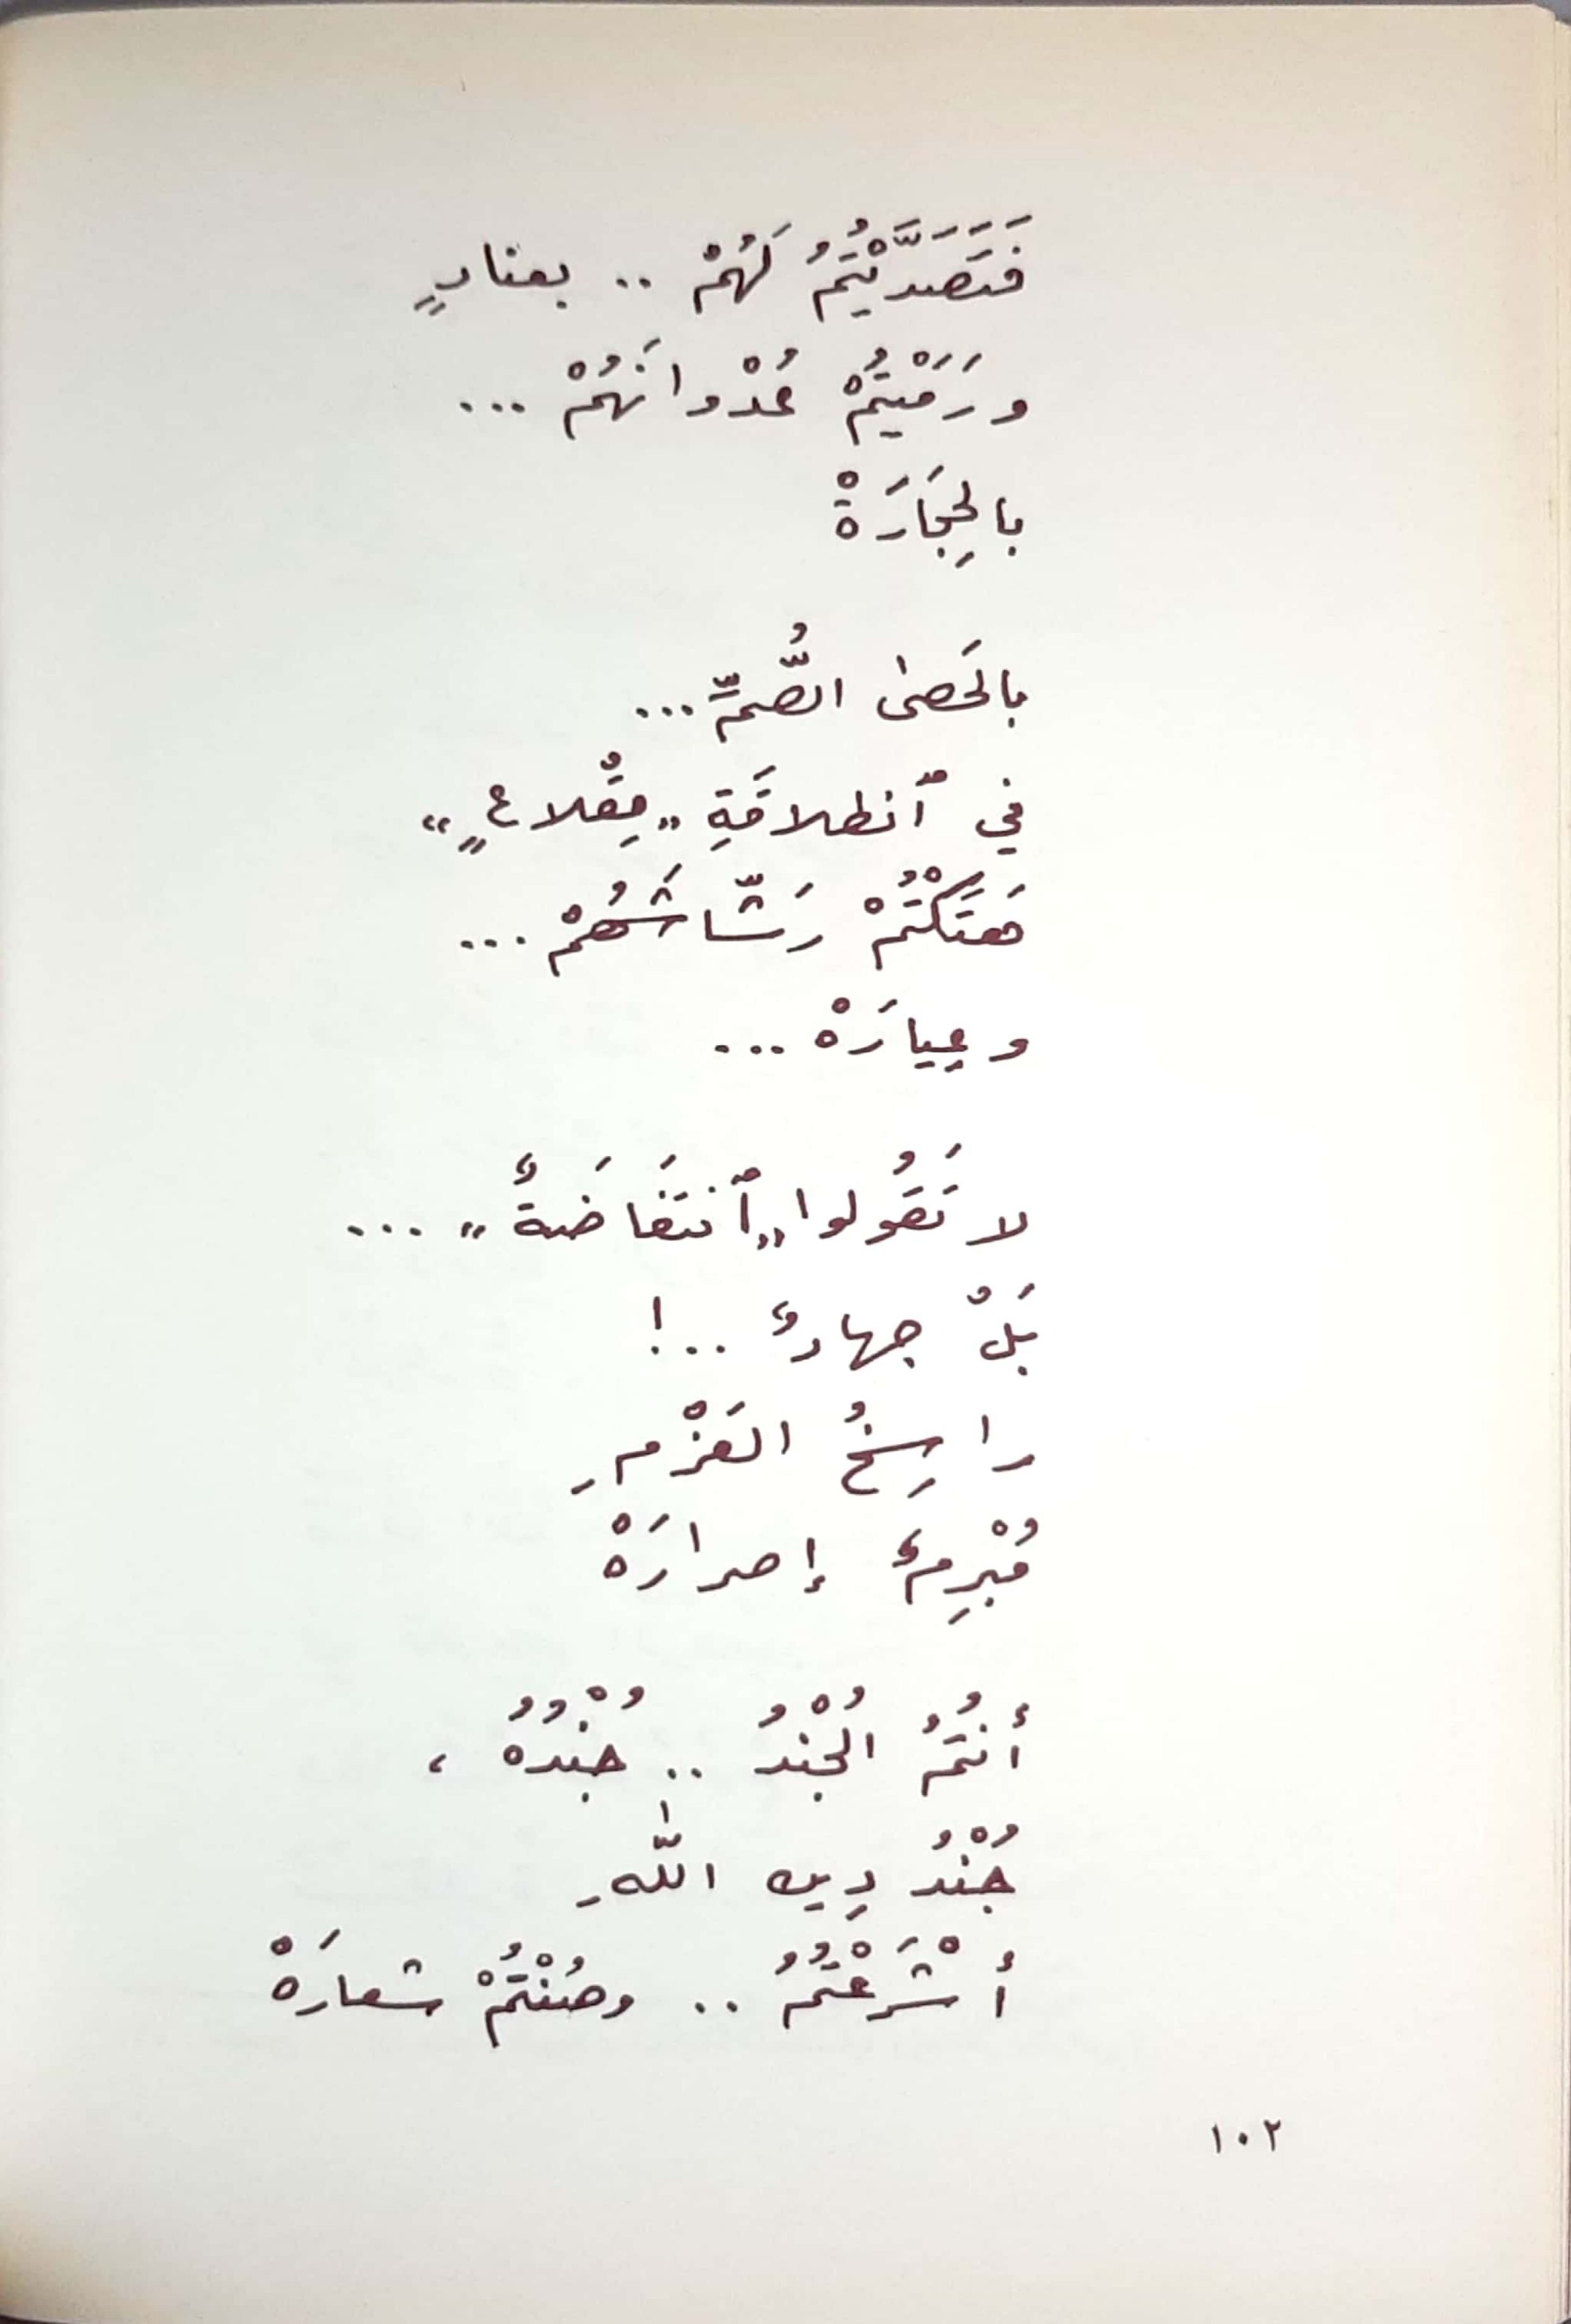 فَتَصَدَّيْتُمُ لَهُمْ .. بعنادٍ
ورَمَيْتُمْ عُدْوانَهُمْ ...
بالحِجَارَةْ
بالحَصىٰ الصُّمِّ ...
في ٱنطلاقَةِ "مِقْلاعٍ"
هَتَكْتُمْ رَشّاشَهُمْ ...
وعِيارَهْ ...
لا تَقُولوا "ٱنتَفَاضَةٌ" ...
بَلْ جهادٌ ..!
راسِخُ العَزْمِ
مُبْرِمٌ إصرارَهْ
أنتُمُ الجُنْدُ .. جُنْدُهُ ،
جُنْدُ دِينِ اللّٰهِ
أشْرَعْتُمُ .. وصُنْتُمْ شعارَهْ
١٠٢